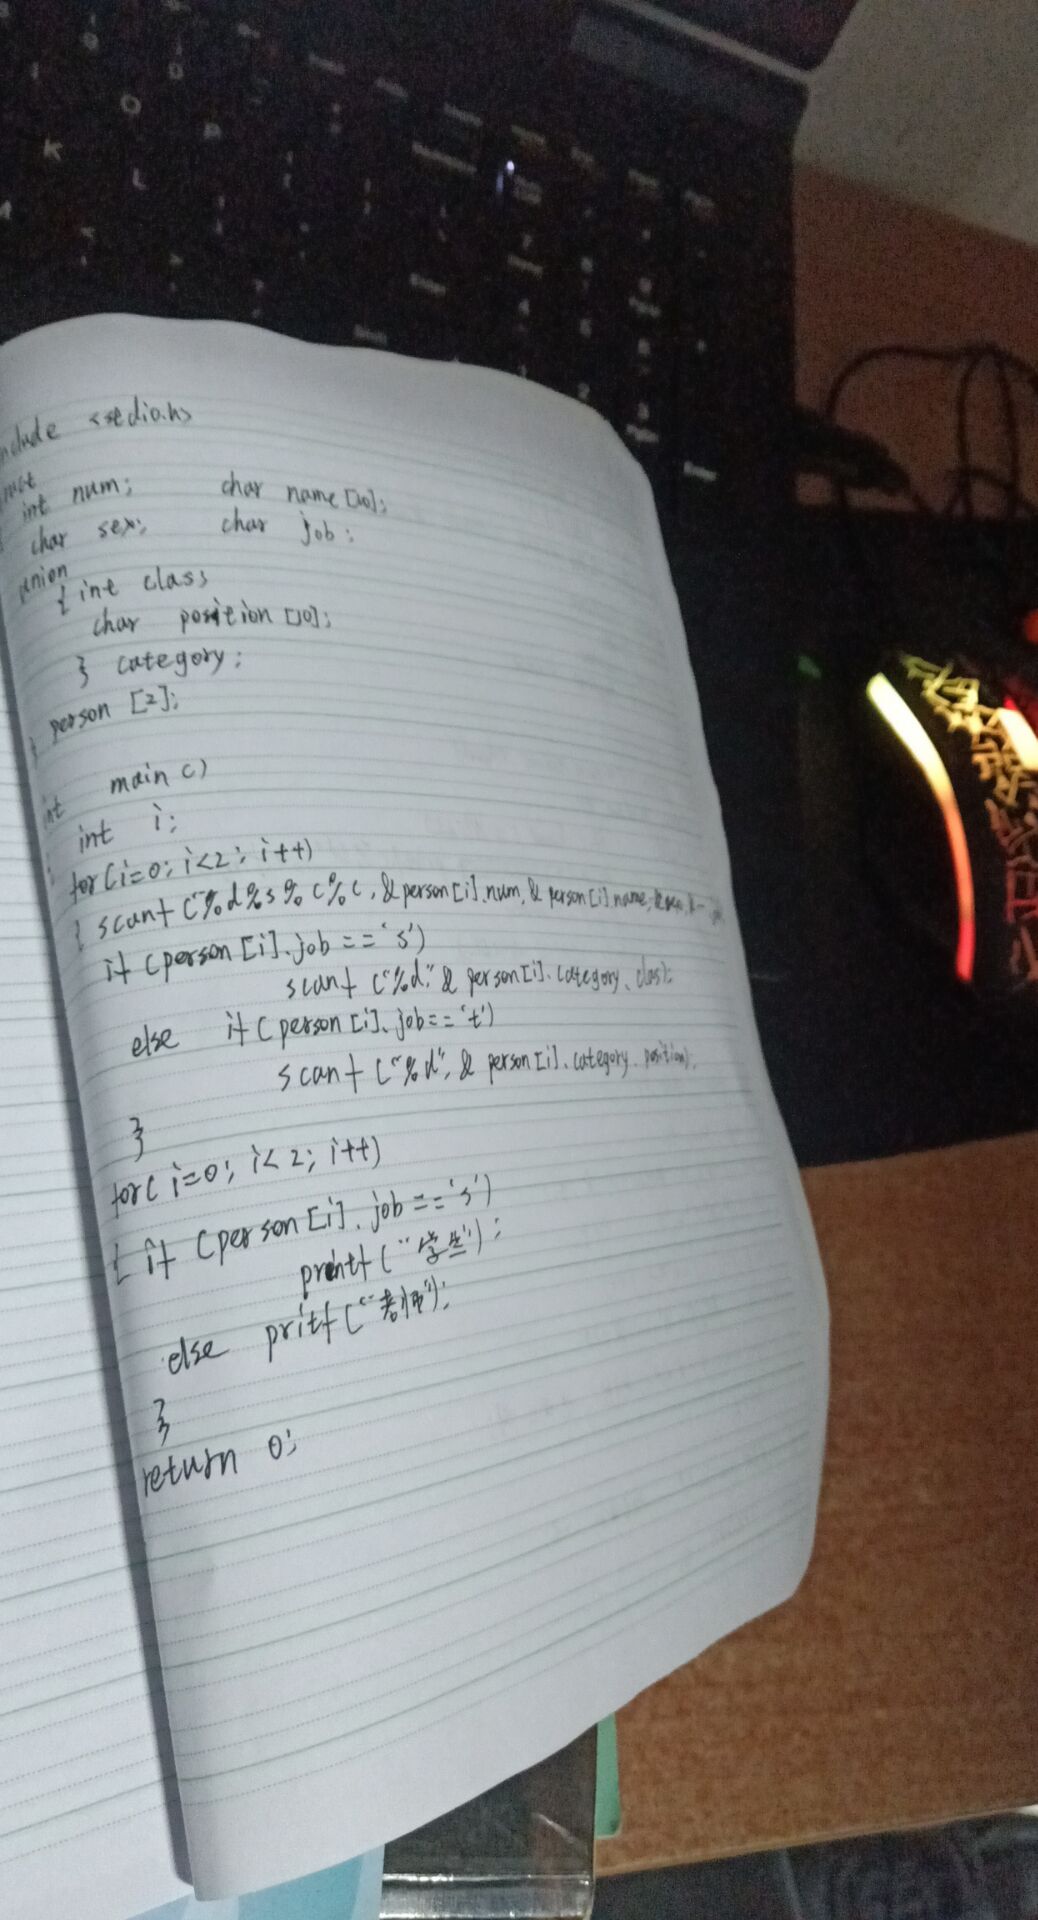 nclude <stdio.h>
ruct
int num; char name [10];
char sex; char job;
union
{ int class;
char position [10];
} category;
} person [2];
int main ()
int i;
for(i=0; i<2; i++)
{ scanf ("%d%s%c%c, & person[i].num, & person[i].name,
if (person [i].job == 's')
scanf ("%d", & person[i].category.class);
else if ( person [i].job == 't')
scanf ("%d", & person[i].category.position);
}
for( i=0; i< 2; i++)
{ if (person [i].job == 's')
printf ("学生");
else pritf ("老师");
}
return 0;
K
L
O